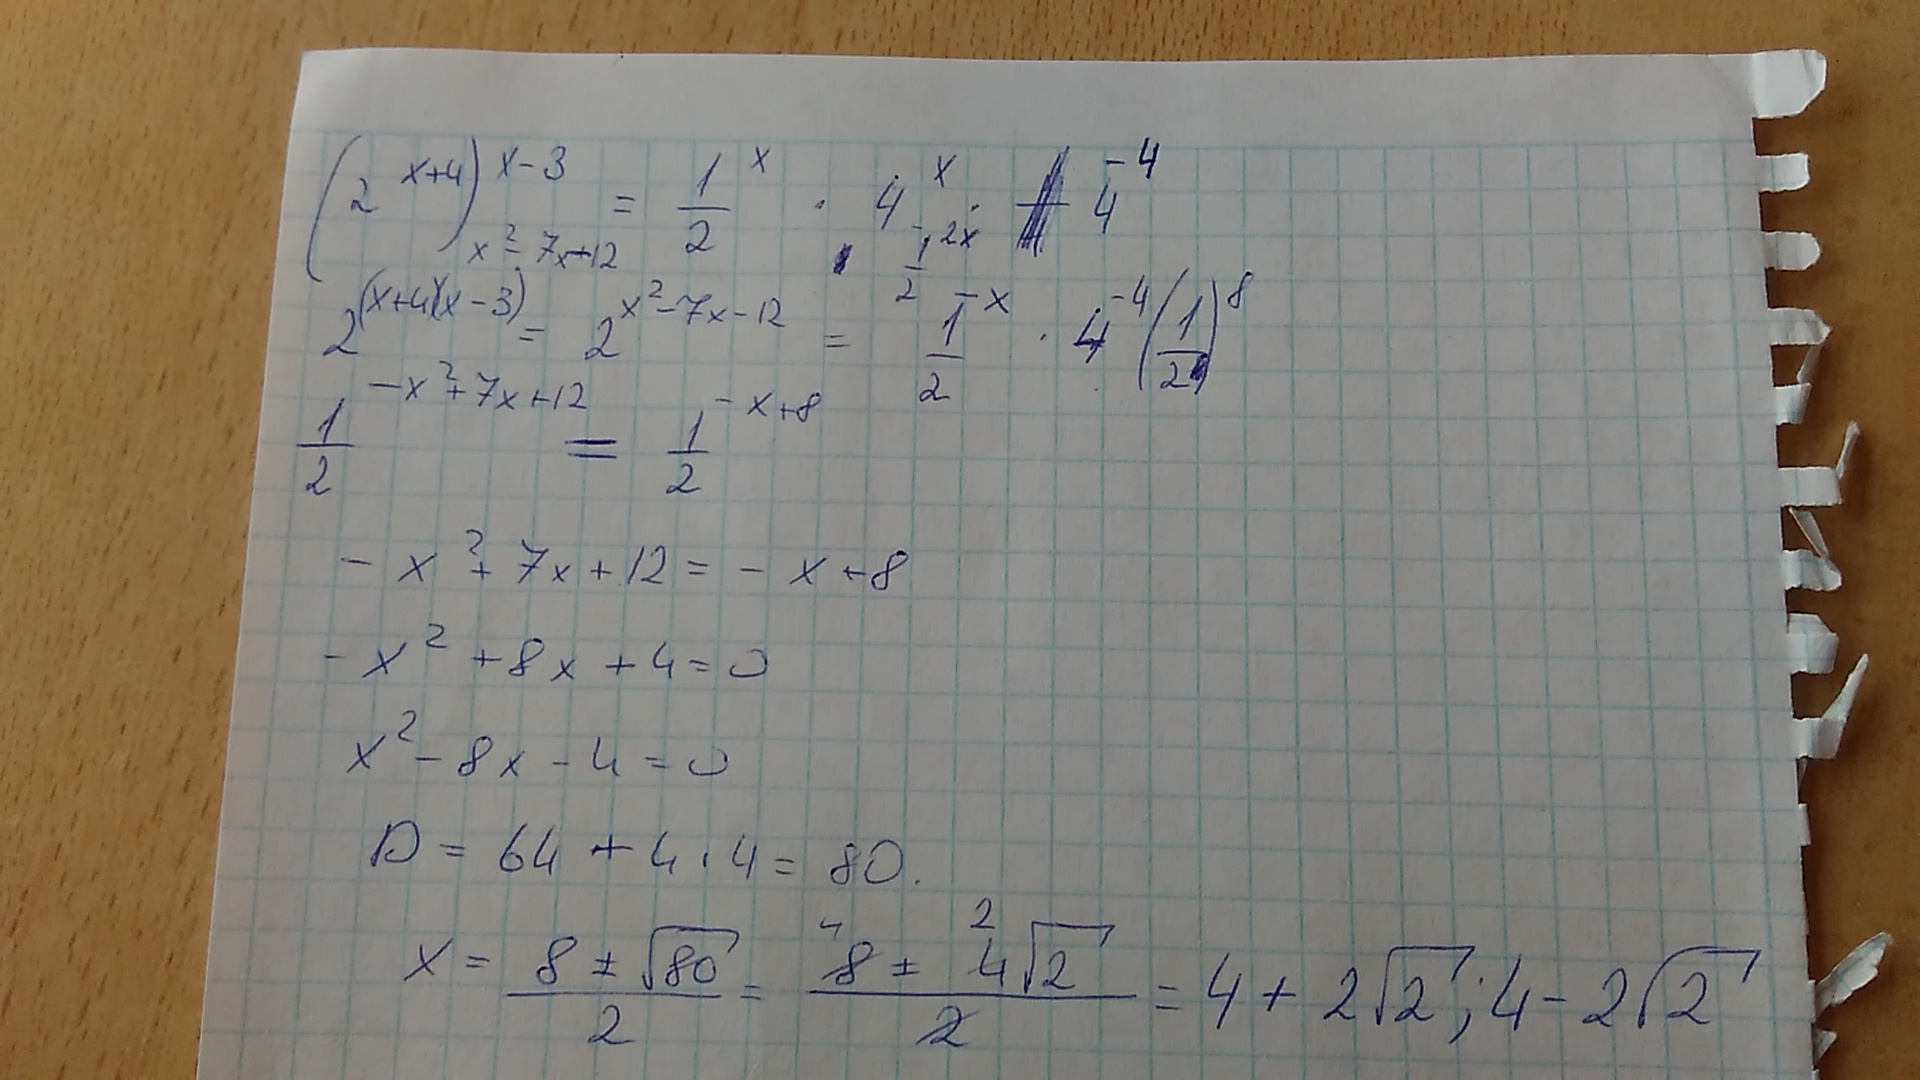 (2^{x+4})^{x-3} = \frac{1}{2}^{x} · 4^{x} · 4^{-4}
x^2 - 7x+12 \frac{1}{2}^{-2x}
2^{(x+4)(x-3)} = 2^{x^2-7x-12} = \frac{1}{2}^{-x} · 4^{-4} (\frac{1}{2})^{8}
\frac{1}{2}^{-x^2+7x+12} = \frac{1}{2}^{-x+8}
-x^2+7x+12 = -x+8
-x^2+8x+4=0
x^2-8x-4=0
D = 64 + 4·4 = 80.
x = \frac{8 ± √80}{2} = \frac{8 ± 4√2}{2} = 4 + 2√2; 4 - 2√2